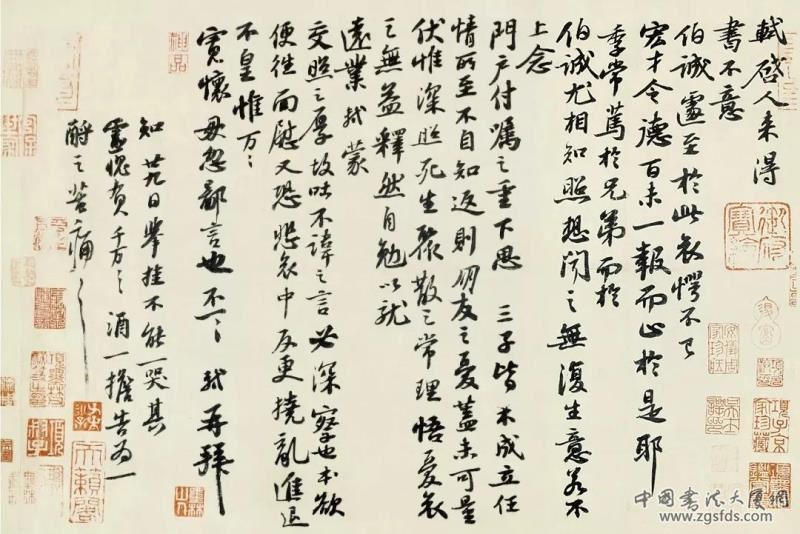 軾啓人來得
書不意
伯誠遽至於此哀愕不已
宏才令德百未一報而止於是耶
季常篤於兄弟而於
伯誠尤相知照想聞之無復生意若不
上念
門户付囑之重下思三子皆未成立任
情所至不自知返則朋友之憂蓋未可量
伏惟深照死生聚散之常理悟憂哀
之無益釋然自勉以就
遠業軾蒙
交照之厚故吐不諱之言必深察也本欲
便往面慰又恐悲哀中反更撓亂進退
不皇惟万〻
寬懷毋忽鄙言也不一〻軾再拜
知廿九日舉挂不能一哭其
靈愧負千万〻酒一擔告為一
酹之苦痛〻
御府寶繪
項子京家珍藏
神品
天籟閣
中国书法大厦网
www.zgsfds.com